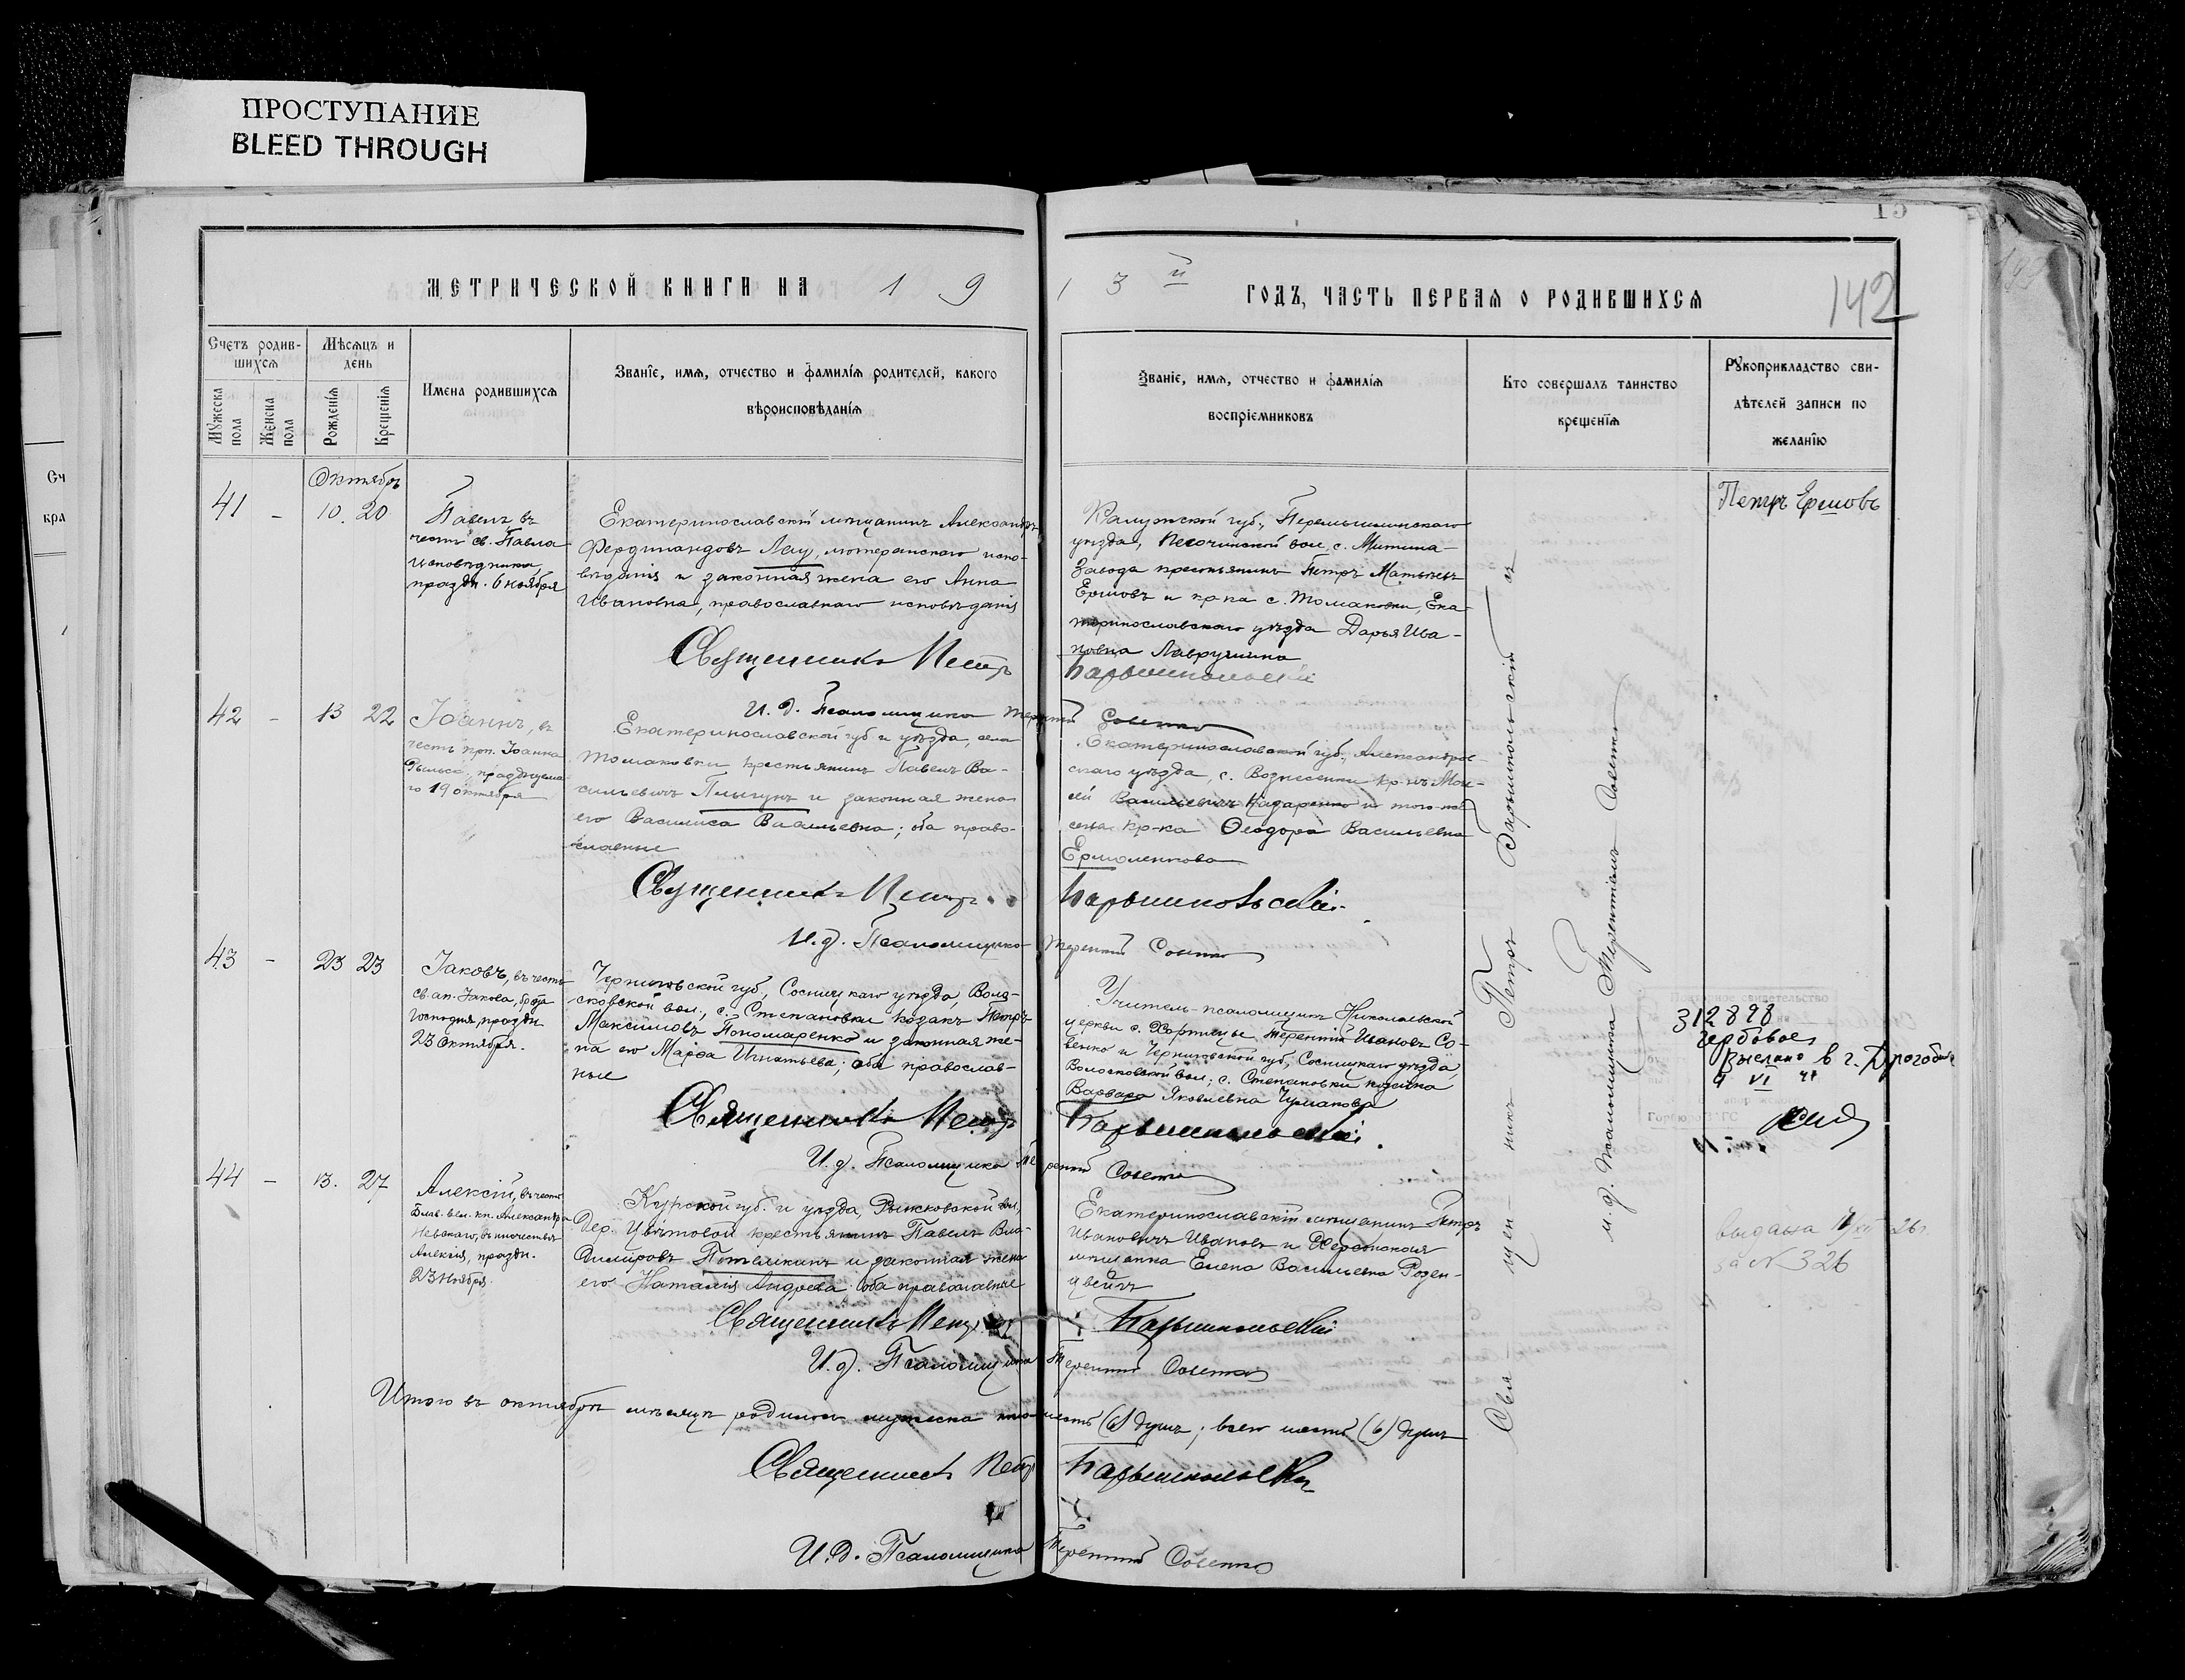 ПРОСТУПАНИЕ
BLEED THROUGH
15
142
МЕТРИЧЕСКОЙ КНИГИ НА 1 9
1 3 й ГОДЪ, ЧАСТЬ ПЕРВАЯ О РОДИВШИХСЯ
Счетъ родив-
шихся
Мужеска
пола
Женска
пола
Мѣсяцъ и
день
Рожденія
Крещенія
Имена родившихся
Званіе, имя, отчество и фамилія родителей, какого
вѣроисповѣданія
Званіе, имя, отчество и фамилія
воспріемниковъ
Кто совершалъ таинство
крещенія
Рукоприкладство сви-
дѣтелей записи по
желанію
Октябрь
41 - 10. 20
Павелъ, въ
честь св. Павла
исповѣдника,
праздн. 6 ноября
Екатеринославскій мѣщанинъ Александръ
Фердинандовъ Лау, лютеранскаго испо-
вѣданія и законная жена его Анна
Ивановна, православнаго исповѣданія
Калужской губ., Перемышльскаго
уѣзда, вол., с. Митина-
Завода крестьянинъ Петръ Матвѣевъ
Ершовъ и кр-ка с. Томаковки, Ека-
теринославскаго уѣзда Дарья Ива-
новна Лаврушина
Петръ Ершовъ
Священникъ Петръ Барышпольскій
И. д. Псаломщика Терентій Совенко
42 - 13 22
Іоаннъ, въ
честь преп. Іоанна
Рыльск., празднуема-
го 19 октября
Екатеринославской губ. и уѣзда, села
Томаковки крестьянинъ Павелъ Ва-
сильевичъ Плыгунъ и законная жена
его Василиса Васильевна; оба право-
славные
Екатеринославской губ., Александров-
скаго уѣзда, с. Вознесенки кр-нъ Мои-
сей Васильевичъ Назаренко и того-же
села кр-ка Ѳеодора Васильевна
Ермоленкова
Священникъ Петръ Барышпольскій
И. д. Псаломщика Терентій Совенко
43 - 23 23
Іаковъ, въ честь
св. ап. Іакова, брата
Господня, праздн.
23 Октября.
Черниговской губ., Сосницкаго уѣзда, Воло-
сковской вол., с. Степановки козакъ Петръ
Максимовъ Пономаренко и законная же-
на его Марѳа Игнатьева; оба православ-
ные
Учитель-псаломщикъ Николаевской
церкви с. Хортицы Терентій Ивановъ Со-
венко и Черниговской губ., Сосницкаго уѣзда,
Волосковской вол., с. Степановки козачка
Варвара Яковлевна Чумакова
312898
гербовое
Выслано в г. Дрогобыч
4 VI 41
Священникъ Петръ Барышпольскій
И. д. Псаломщика Терентій Совенко
44 - 13. 27
Алексій, въ честь
Благ. вел. кн. Александра
Невскаго, въ иночествѣ
Алексія, праздн.
23 Ноября.
Курской губ. и уѣзда, Рышковской вол.,
Дер. Цвѣтовой крестьянинъ Павелъ Вла-
диміровъ Потемкинъ и законная жена
его Наталія Андреева оба православные
Екатеринославскій мѣщанинъ Петръ
Ивановичъ Ивановъ и Херсонская
мѣщанка Елена Васильевна Розен-
цвейгъ
выдана 26г.
за N 326
Священникъ Петръ Барышпольскій
И. д. Псаломщика Терентій Совенко
Итого въ октябрѣ мѣсяцѣ родилось мужеска пола шесть (6) душъ; всего шесть (6) душъ
Священникъ Петръ Барышпольскій
И. д. Псаломщика Терентій Совенко
Священникъ Петръ Барышпольскій и
и. д. Псаломщика Терентій Совенко